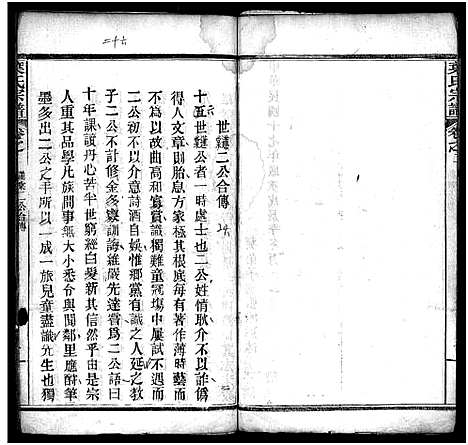 葉氏宗譜 卷之二
二十六
世鑣二公合傳
十五世鑣公者一時處士也二公姓情耿介不以詐僞
得人文章則胎息方家極其根底每有著作薄時藝而
不爲以故曲高和寡賞識獨難童冠塲中屢試不遇而
二公初不以介意詩酒自娛惟鄉黨有識之人延之教
子二公不計修金多寡訓誨維嚴先達嘗爲二公語曰
十年課讀丹心苦半世窮經白髮新其信然乎由是宗
人重其品學凡族間事無大小悉分與聞鄰里應酧筆
墨多出二公之手所以一成一旅兒童盡識先生也獨
葉氏宗譜 卷之二
二公合傳